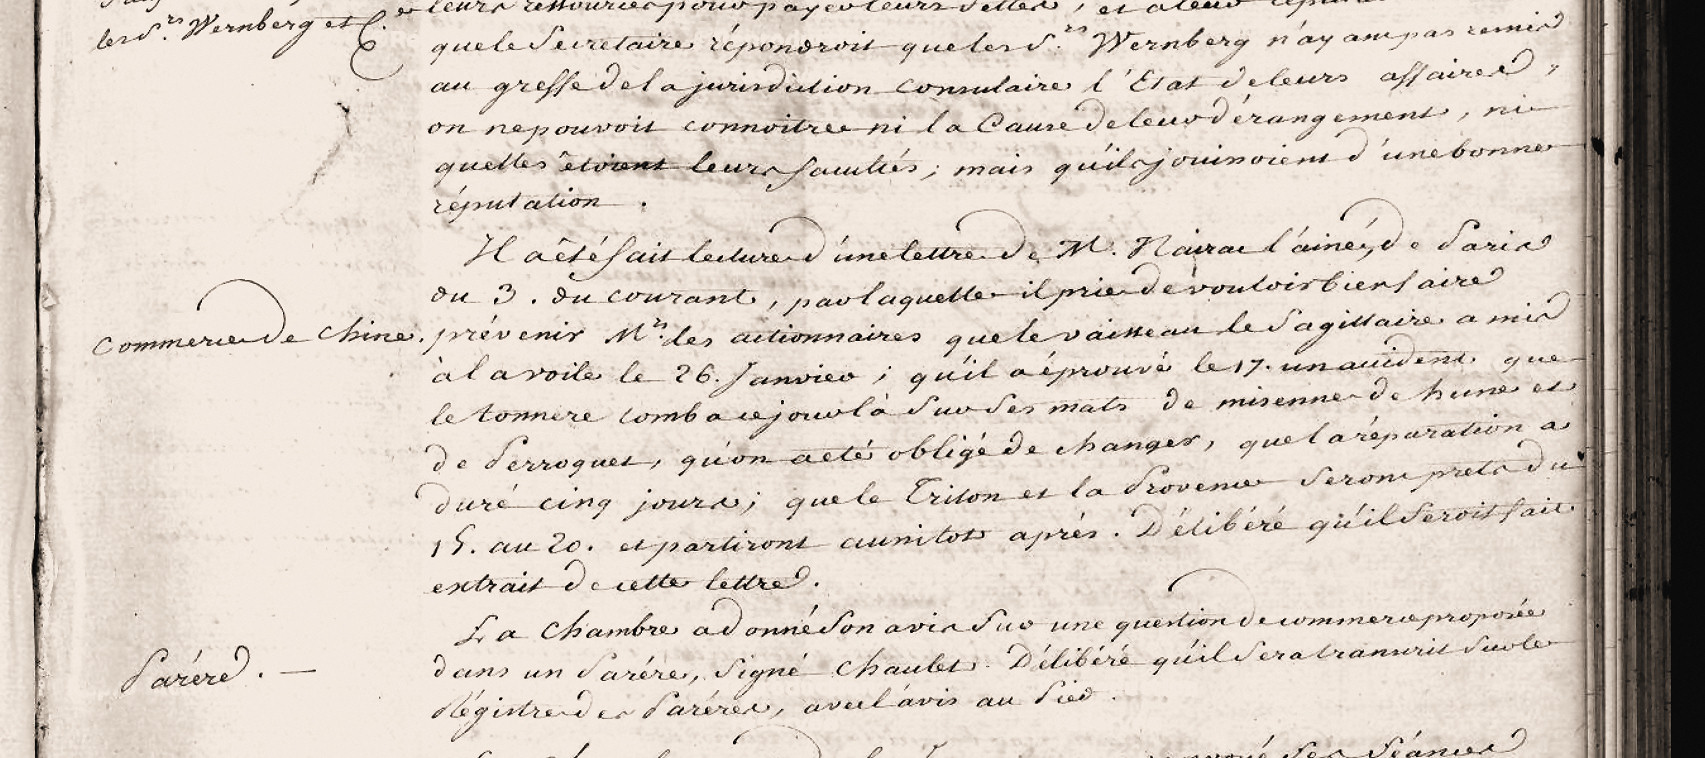 les S.rs Wernberg et C.e
leurs ressources pour payer leurs dettes, et a leur
que le Secretaire répondroit que les S.rs Wernberg n'ayant pas remis
au greffe de la jurisdiction consulaire l'Etat de leurs affaires,
on ne pouvoit connoitre ni la Cause de leur dérangement, ni
quelles étoient leurs facultés; mais qu'ils jouissoient d'une bonne
réputation.
Il a été fait lecture d'une lettre de M. Nairac l'ainé, de Paris
du 3. du courant, par laquelle il prie de vouloir bien faire
Commerce de Chine.
prévenir M.rs les actionnaires que le vaisseau le Sagittaire a mis
à la voile le 26. Janvier; qu'il a éprouvé le 17. un accident que
le tonnere tomba ce jour là sur ses mats de misenne de hune et
de Perroquet, qu'on a eté obligé de changer, que la réparation a
duré cinq jours; que le Triton et la Provence seront prets du
15. au 20. et partiront aussitot après. Délibéré qu'il seroit fait
extrait de cette lettre.
La Chambre a donné son avis sur une question de commerce proposée
Paréré. —
dans un Paréré, signé Chaulet. Délibéré qu'il sera transcrit sur le
Régistre des Paréres, avec l'avis au Pied.
ses Séances